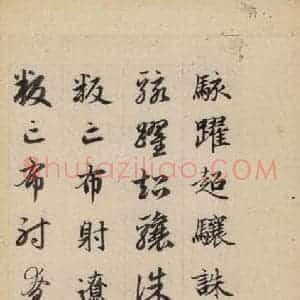 駭躍超驤誅
駭躍超驤誅
叛亡布射遼
叛亡布射遼
Shufaziliao.COM